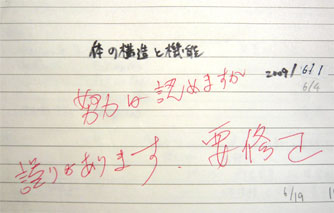 体の構造と機能
2009/6/1
6/9
努力は認めますが
誤りがあります 要修正
6/19